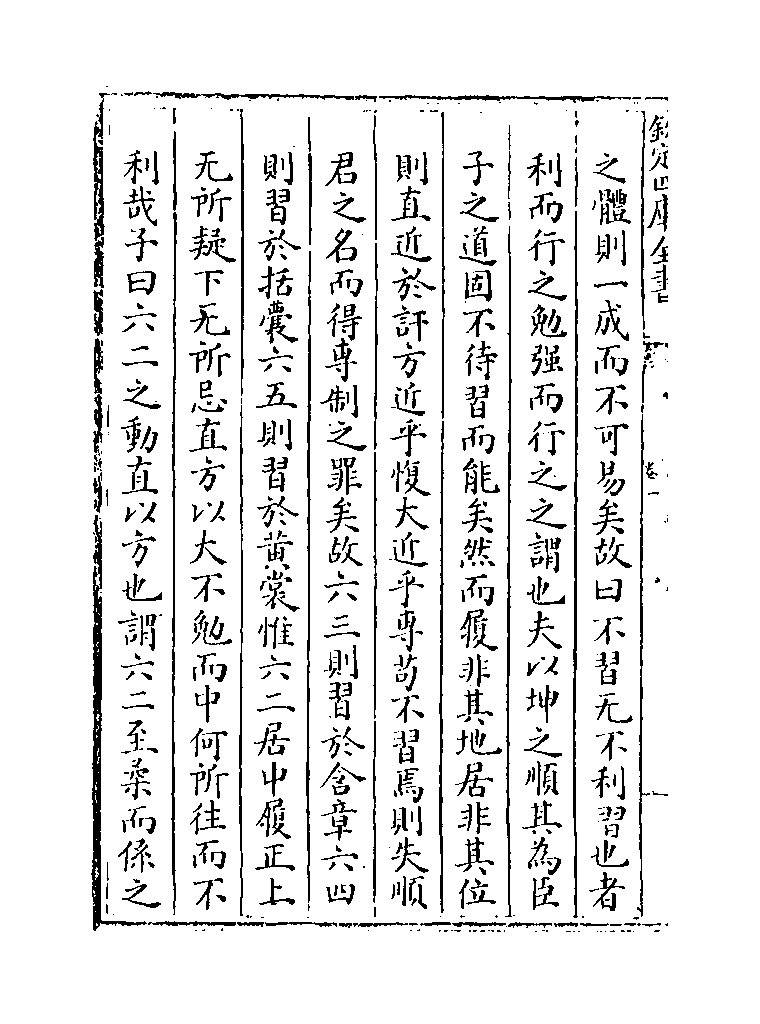 欽定四庫全書
卷一
之體則一成而不可易矣故曰不習无不利習也者
利而行之勉强而行之之謂也夫以坤之順其為臣
子之道固不待習而能矣然而履非其地居非其位
則直近於訐方近乎愎大近乎專苟不習焉則失順
君之名而得專制之罪矣故六三則習於含章六四
則習於括囊六五則習於黄裳惟六二居中履正上
无所疑下无所忌直方以大不勉而中何所往而不
利哉子曰六二之動直以方也謂六二至柔而係之